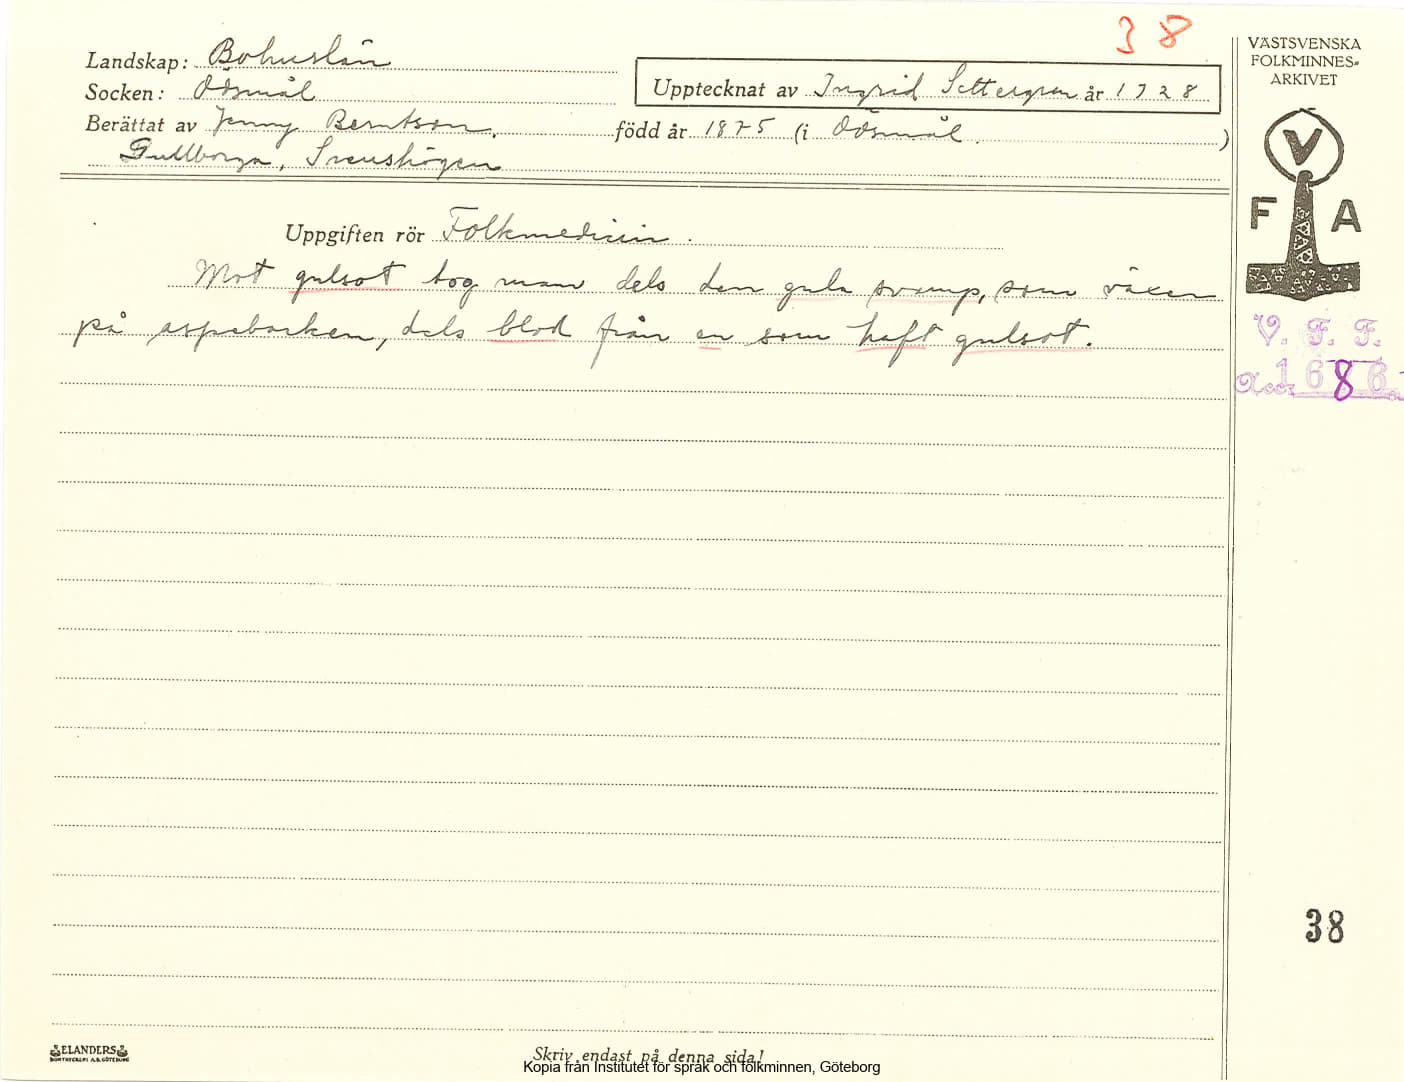 38
Landskap: Bohuslän
Socken: Ödsmål
Upptecknat av Ingrid Settergren år 1928
Berättat av Jenny Berntson, född år 1875 (i Ödsmål.)
Gullborga, Svenshögen
Uppgiften rör Folkmedicin.
Mot gulsot tog man dels den gula svamp, som växer
på aspebarken, dels blod från en som haft gulsot.
VÄSTSVENSKA
FOLKMINNES-
ARKIVET
V
F A
V. F. F.
Acc. 1686
38
ELANDERS
BOKTRYCKERI A.B. GÖTEBORG
Skriv endast på denna sida!
Kopia från Institutet för språk och folkminnen, Göteborg